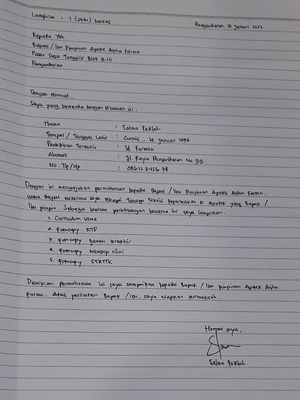 Lampiran : 1 (satu) berkas
Pangandaran, 14 Januari 2022
Kepada Yth
Bapak / Ibu Pimpinan Apotek Aisha Farma
Pasar Desa Tunggilis Blok B-10
Pangandaran
Dengan Hormat,
Saya yang bertanda tangan dibawah ini :
Nama : Salma
Tempat / Tanggal Lahir : Ciamis, 14 Januari 1999
Pendidikan Terakhir : D3 Farmasi
Alamat : Jl. Raya Pangandaran No 313
No. Tlp / Hp : 08612 345678
Dengan ini mengajukan permohonan kepada Bapak / Ibu Pimpinan Apotek Aisha Farma,
untuk dapat menerima saya sebagai Tenaga Teknis Kefarmasian di Apotek yang Bapak /
Ibu pimpin. Sebagai bahan pertimbangan bersama ini saya lampirkan :
1. Curriculum Vitae
2. Fotocopy KTP
3. Fotocopy Ijazah terakhir
4. Fotocopy transkip nilai
5. Fotocopy STRTTK
Demikian permohonan ini saya sampaikan kepada Bapak / Ibu Pimpinan Apotek Aisha
Farma. Atas perhatian Bapak / Ibu, saya ucapkan terimakasih.
Hormat saya,
Salma